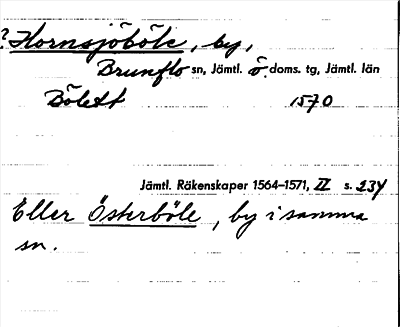 ? Hornsjöböle, by,
Brunflo sn, Jämtl. ö doms. tg, Jämtl. län
Bölett 1570
Jämtl. Räkenskaper 1564–1571, IV s. 234
Eller Österböle, by i samma
sn.